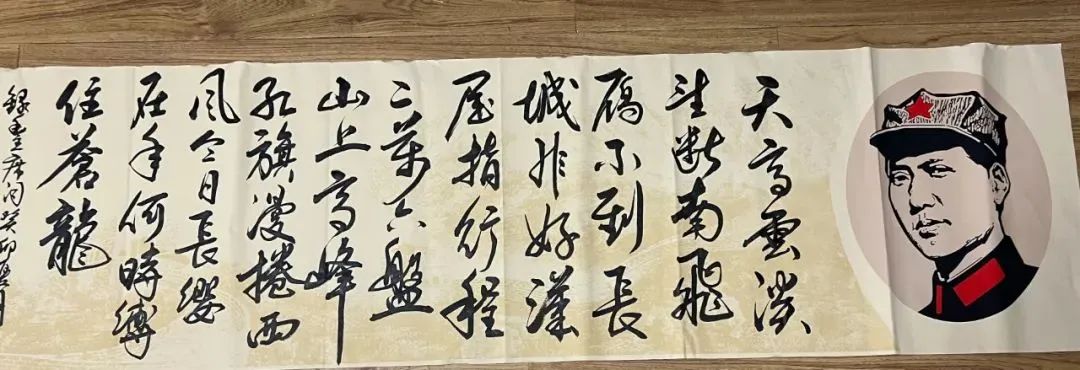 天高雲淡
望斷南飛
雁不到長
城非好漢
屈指行程
二萬六盤
山上高峰
紅旗漫捲西
風今日長纓
在手何時縛
住蒼龍
錄毛主席詞癸卯月